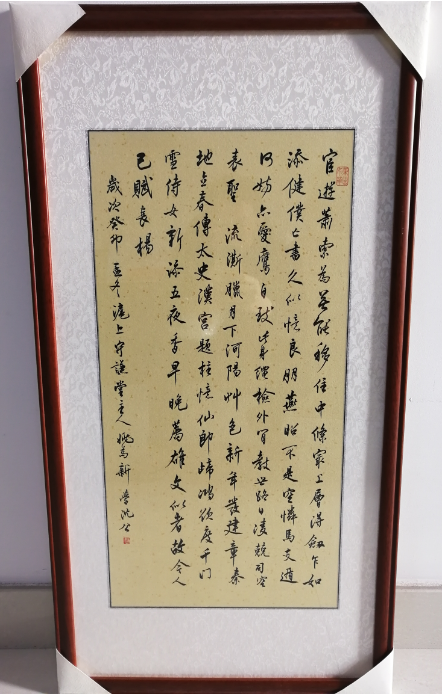 宦遊蕭索為無能移住中條最上層得劔乍如
添健僕亡書久似憶良朋燕昭不是空憐馬支遁
何妨亦愛鷹自致此身繩檢外肎教世路日凌兢司空
表聖 流澌臘月下河陽艸色新年發建章秦
地立春傳太史漢宮題柱憶仙郎歸鴻欲度千門
雪侍女新添五夜香早晚薦雄文似者故今人
已賦長楊
歲次癸卯孟冬滬上守謙堂主人姚為新學沈公